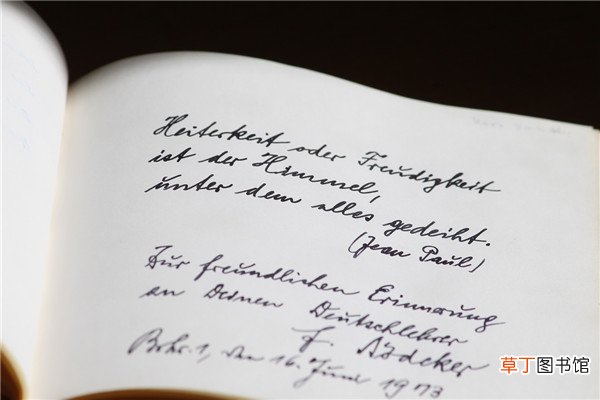 Heiterkeit oder Freudigkeit
ist der Himmel,
unter dem alles gedeiht.
(Jean Paul)
Zur freundlichen Erinnerung
an Deinen Deutschlehrer
F. Bödeker
den 16. Juni 1973
草丁图书馆